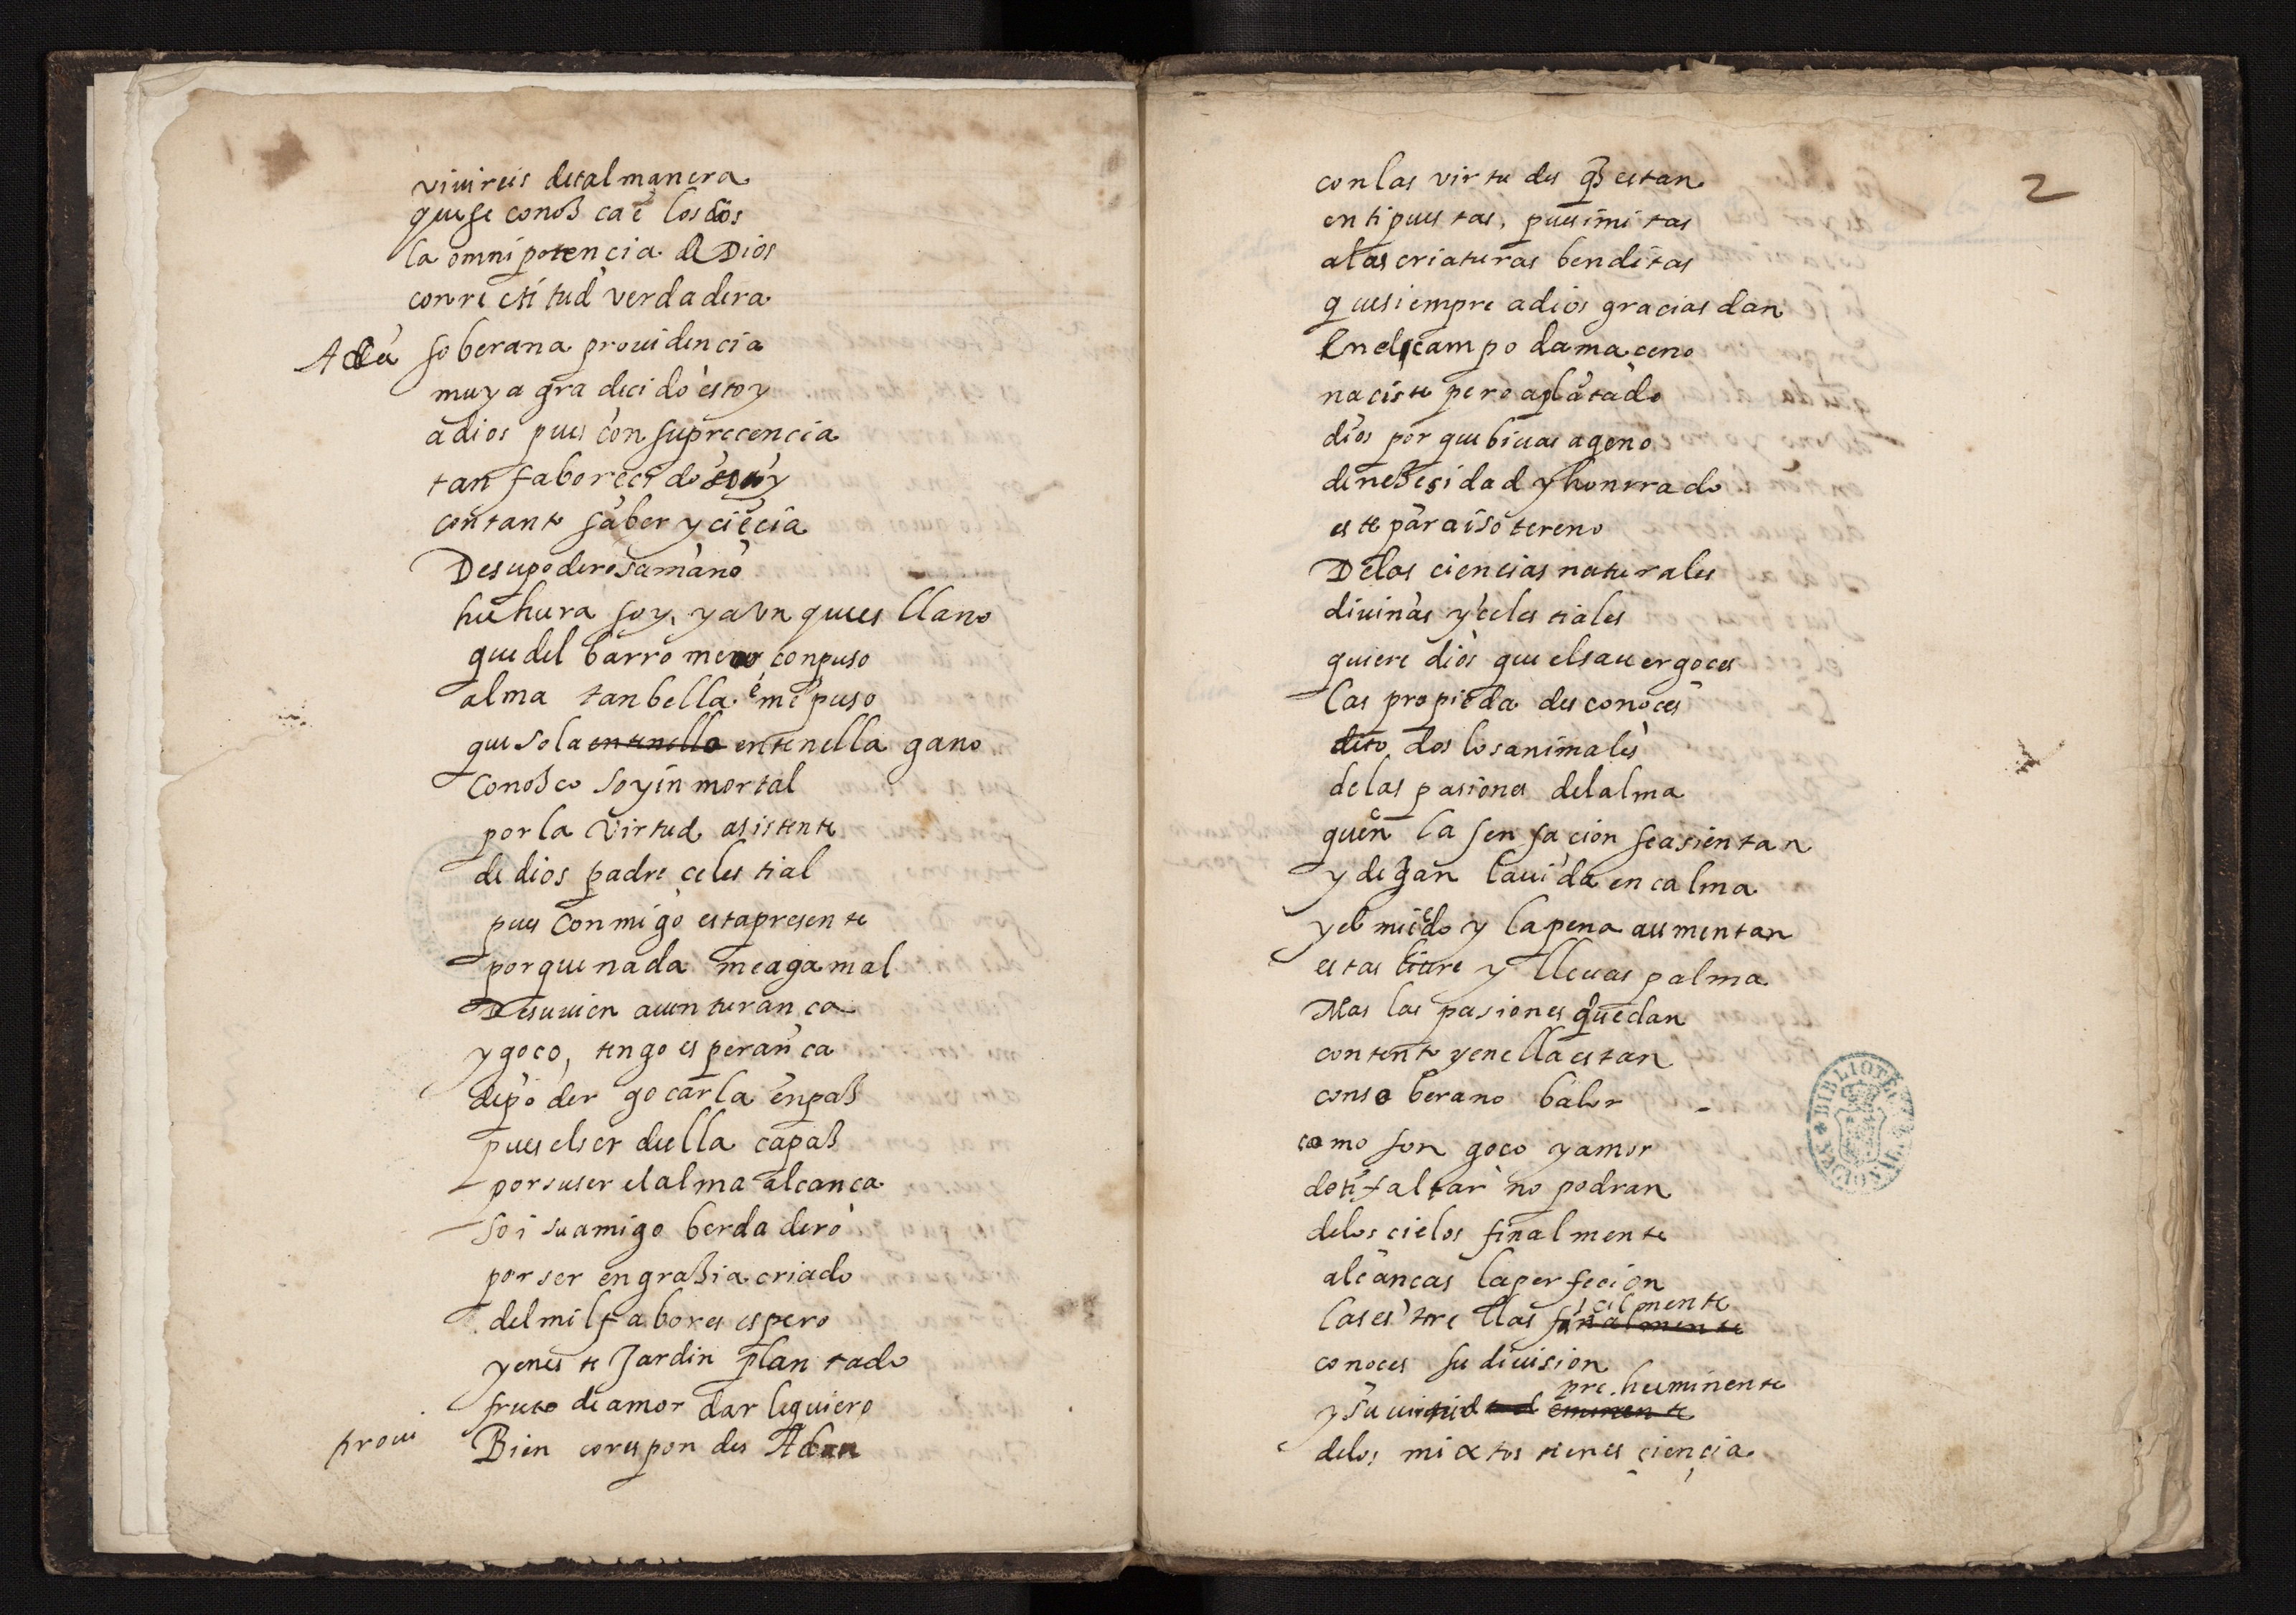 viuireis detal manera
que se conosca ē los dos
la omnipotencia de Dios
con restitud verdadera
Adā soberana prouidencia
muy agradecido estoy
a dios pues con su precencia
tan faborecido soy
con tanto saber y ciēcia
De su poderosa mano
hechura soy, y aunque es llano
que del barro me conpuso
alma tan bella ē me puso
que sola entenella entenella gano
Conosco soy inmortal
por la virtud asistente
de dios padre celestial
pues conmigo esta presente
porque nada me aga mal
De su uien auenturanca
y goco, tengo esperanca
de poder gocarla en pas
pues el ser della capas
por su ser el alma alcanca
Soi su amigo berdadero
por ser en grasia criado
del mil fabores espero
y en este Jardin plantado
fruto de amor dar le quiero
proui Bien corespondes Adan
2
con las virtudes q̄ estan
en ti puestas, pues imitas
a las criaturas benditas
que siempre a dios gracias dan
En el campo damaceno
naciste pero a plātado
dios por que biuas ageno
de nesesidad y honrrado
este paraiso tereno
De las ciencias naturales
diuinas y celestiales
quiere dios que el sauer goces
las propiedades conoces
de todos los animales
de las pasiones del alma
que en la sensacion se asientan
y dejan la uida en calma
y el miedo y la pena aumentan
estas liure y lleuas palma
Mas las pasiones quedan
contento y en ella estan
con soberano balor
como son goco y amor
de ti faltar no podran
de los cielos finalmente
alcancas la perfecion
las estrellas finalmente facilmente
conoces su diuision
y su uirtud eminente pre heminente
de los mixtos tienes ciencia
BIBLIOTECA